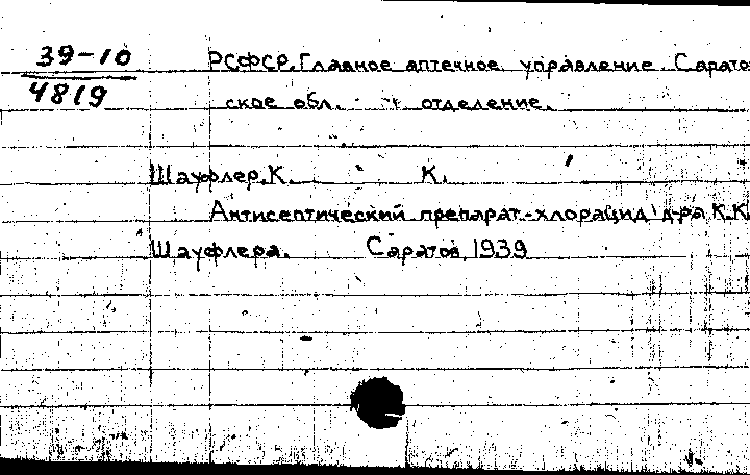 39-10
4819
РСФСР. Главное аптечное управление. Сарато
ское обл. отделение.
Шауфлер, К. К.
Антисептический препарат-хлорацид д-ра К.К
Шауфлера. Саратов, 1939